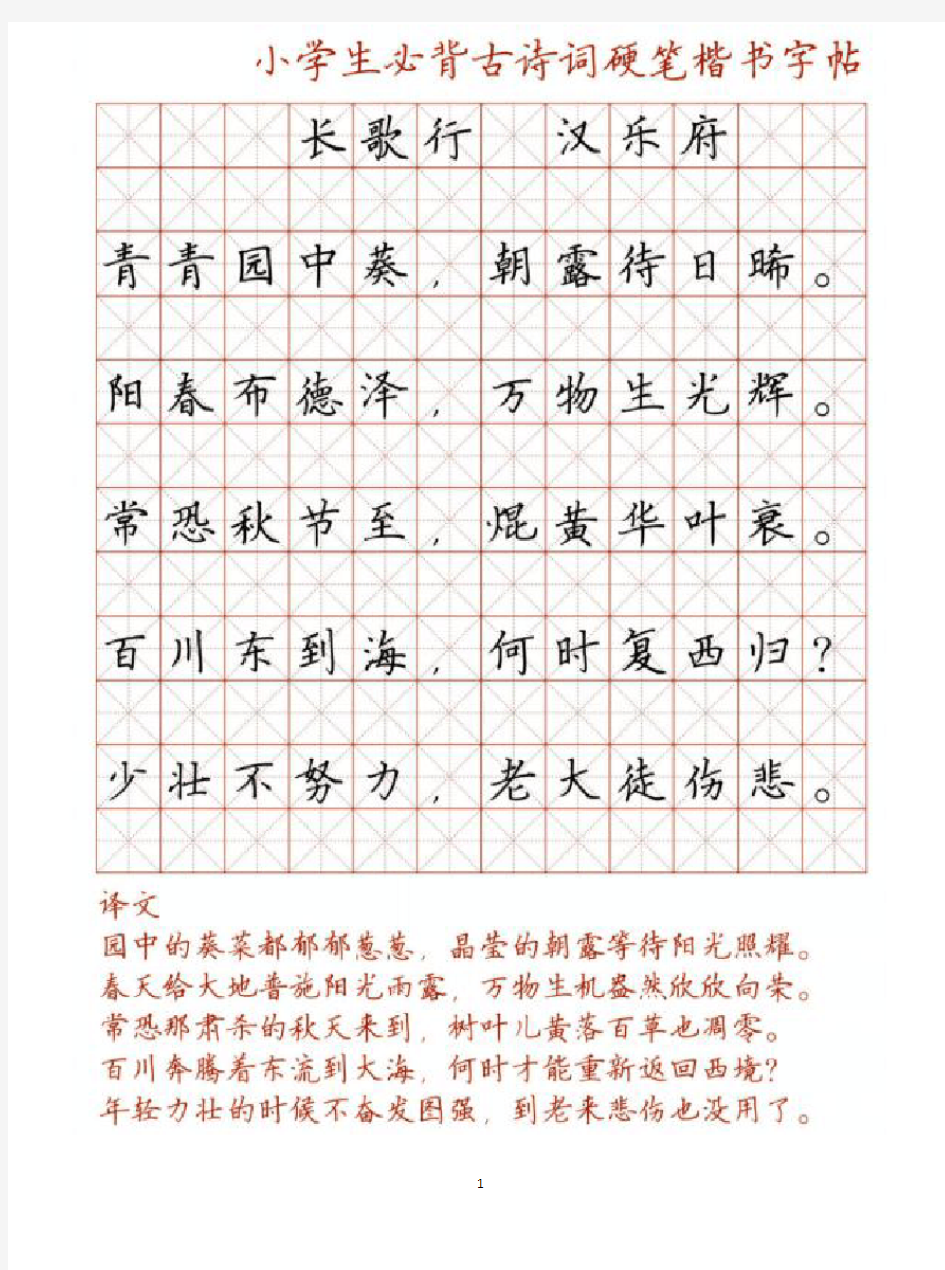 小学生必背古诗词硬笔楷书字帖
长歌行 汉乐府
青青园中葵，朝露待日晞。
阳春布德泽，万物生光辉。
常恐秋节至，焜黄华叶衰。
百川东到海，何时复西归？
少壮不努力，老大徒伤悲。
译文
园中的葵菜都郁郁葱葱，晶莹的朝露等待阳光照耀。
春天给大地普施阳光雨露，万物生机盎然欣欣向荣。
常恐那肃杀的秋天来到，树叶儿黄落百草也凋零。
百川奔腾着东流到大海，何时才能重新返回西境？
年轻力壮的时候不奋发图强，到老来悲伤也没用了。
1